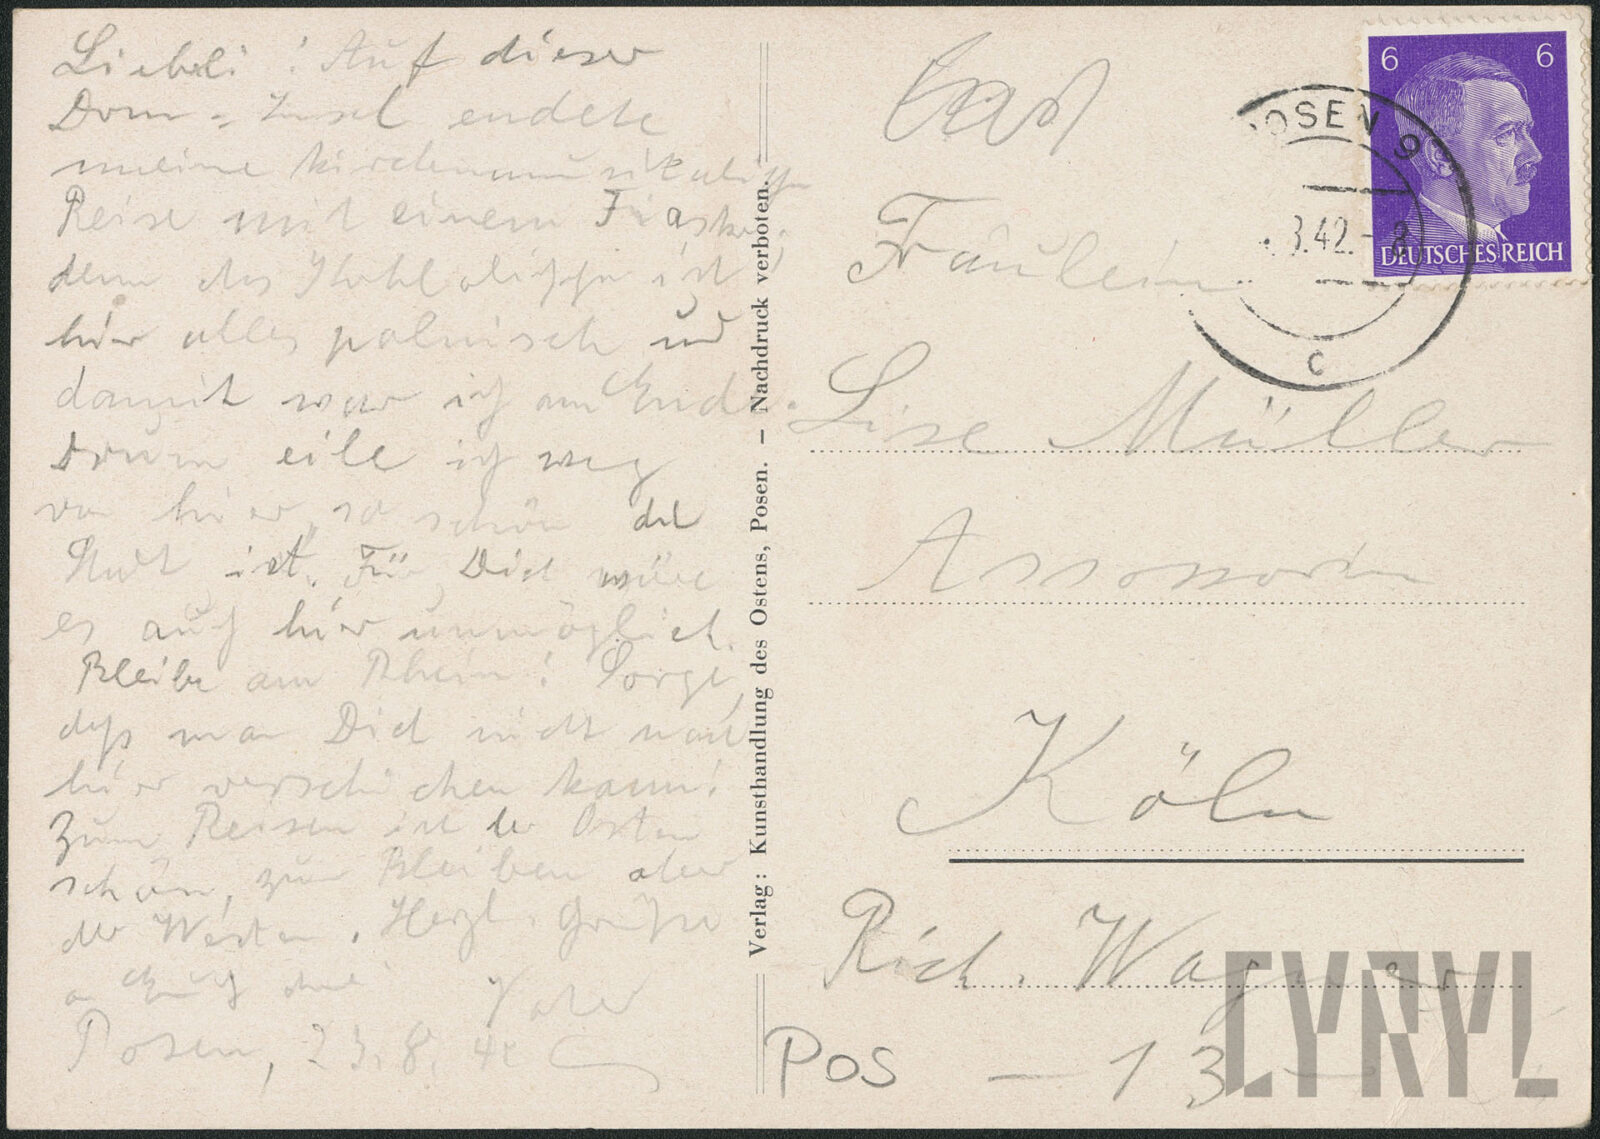 Liebli! Auf dieser
Dom-Insel endete
meine kirchenmusikalische
Reise mit einem Fiasko,
denn das Katholische ist
hier alles polnisch und
damit war ich am Ende.
Drum eile ich weg
von hier, so schön die
Stadt ist. Für Dich wäre
es auch hier unmöglich.
Bleibe am Rhein! Sorge,
daß man Dich nicht nach
hier verschicken kann!
Zum Reisen ist der Osten
schön, zum Bleiben aber
der Westen. Herzl. Grüße
an Euch drei Vater
Posen, 23.8.42
Verlag: Kunsthandlung des Ostens, Posen. – Nachdruck verboten.
6 6
DEUTSCHES REICH
POSEN 9
.8.42.-8
c
Fräulein
Lise Müller
Assessorin
Köln
Rich. Wagner
POS - 13 -
CYRYL